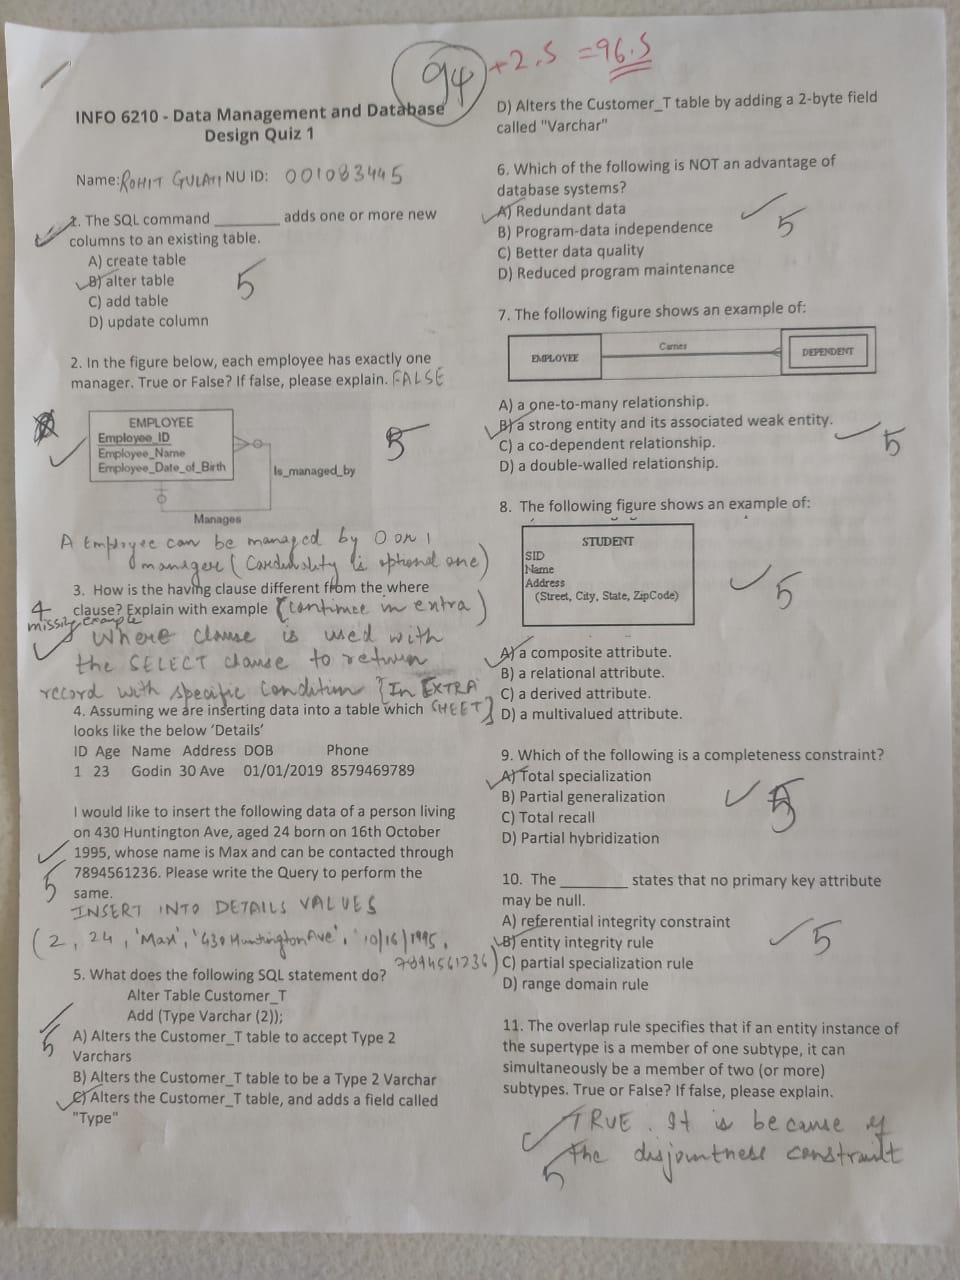 94 +2.5 =96.5
INFO 6210 - Data Management and Database
Design Quiz 1
Name: ROHIT GULATI NU ID: 001083445
1. The SQL command ________ adds one or more new
columns to an existing table.
A) create table
B) alter table
C) add table
D) update column
5
2. In the figure below, each employee has exactly one
manager. True or False? If false, please explain. FALSE
EMPLOYEE
Employee_ID
Employee_Name
Employee_Date_of_Birth
Is_managed_by
Manages
5
A Employee can be managed by 0 or 1
manager (Cardinality is optional one)
3. How is the having clause different from the where
clause? Explain with example (continue in extra)
4
missing example
Where clause is used with
the SELECT clause to return
record with specific condition {In EXTRA
SHEET}
4. Assuming we are inserting data into a table which
looks like the below 'Details'
ID Age Name Address DOB Phone
1 23 Godin 30 Ave 01/01/2019 8579469789
I would like to insert the following data of a person living
on 430 Huntington Ave, aged 24 born on 16th October
1995, whose name is Max and can be contacted through
7894561236. Please write the Query to perform the
same.
5
INSERT INTO DETAILS VALUES
(2, 24, 'Max', '430 Huntington Ave', '10/16/1995,
7894561236)
5. What does the following SQL statement do?
Alter Table Customer_T
Add (Type Varchar (2));
5
A) Alters the Customer_T table to accept Type 2
Varchars
B) Alters the Customer_T table to be a Type 2 Varchar
C) Alters the Customer_T table, and adds a field called
"Type"
D) Alters the Customer_T table by adding a 2-byte field
called "Varchar"
6. Which of the following is NOT an advantage of
database systems?
A) Redundant data
B) Program-data independence
C) Better data quality
D) Reduced program maintenance
5
7. The following figure shows an example of:
EMPLOYEE Carries DEPENDENT
A) a one-to-many relationship.
B) a strong entity and its associated weak entity.
C) a co-dependent relationship.
D) a double-walled relationship.
5
8. The following figure shows an example of:
STUDENT
SID
Name
Address
(Street, City, State, ZipCode)
5
A) a composite attribute.
B) a relational attribute.
C) a derived attribute.
D) a multivalued attribute.
9. Which of the following is a completeness constraint?
A) Total specialization
B) Partial generalization
C) Total recall
D) Partial hybridization
5
10. The ________ states that no primary key attribute
may be null.
A) referential integrity constraint
B) entity integrity rule
C) partial specialization rule
D) range domain rule
5
11. The overlap rule specifies that if an entity instance of
the supertype is a member of one subtype, it can
simultaneously be a member of two (or more)
subtypes. True or False? If false, please explain.
TRUE. It is because of
the disjointness constraint
5